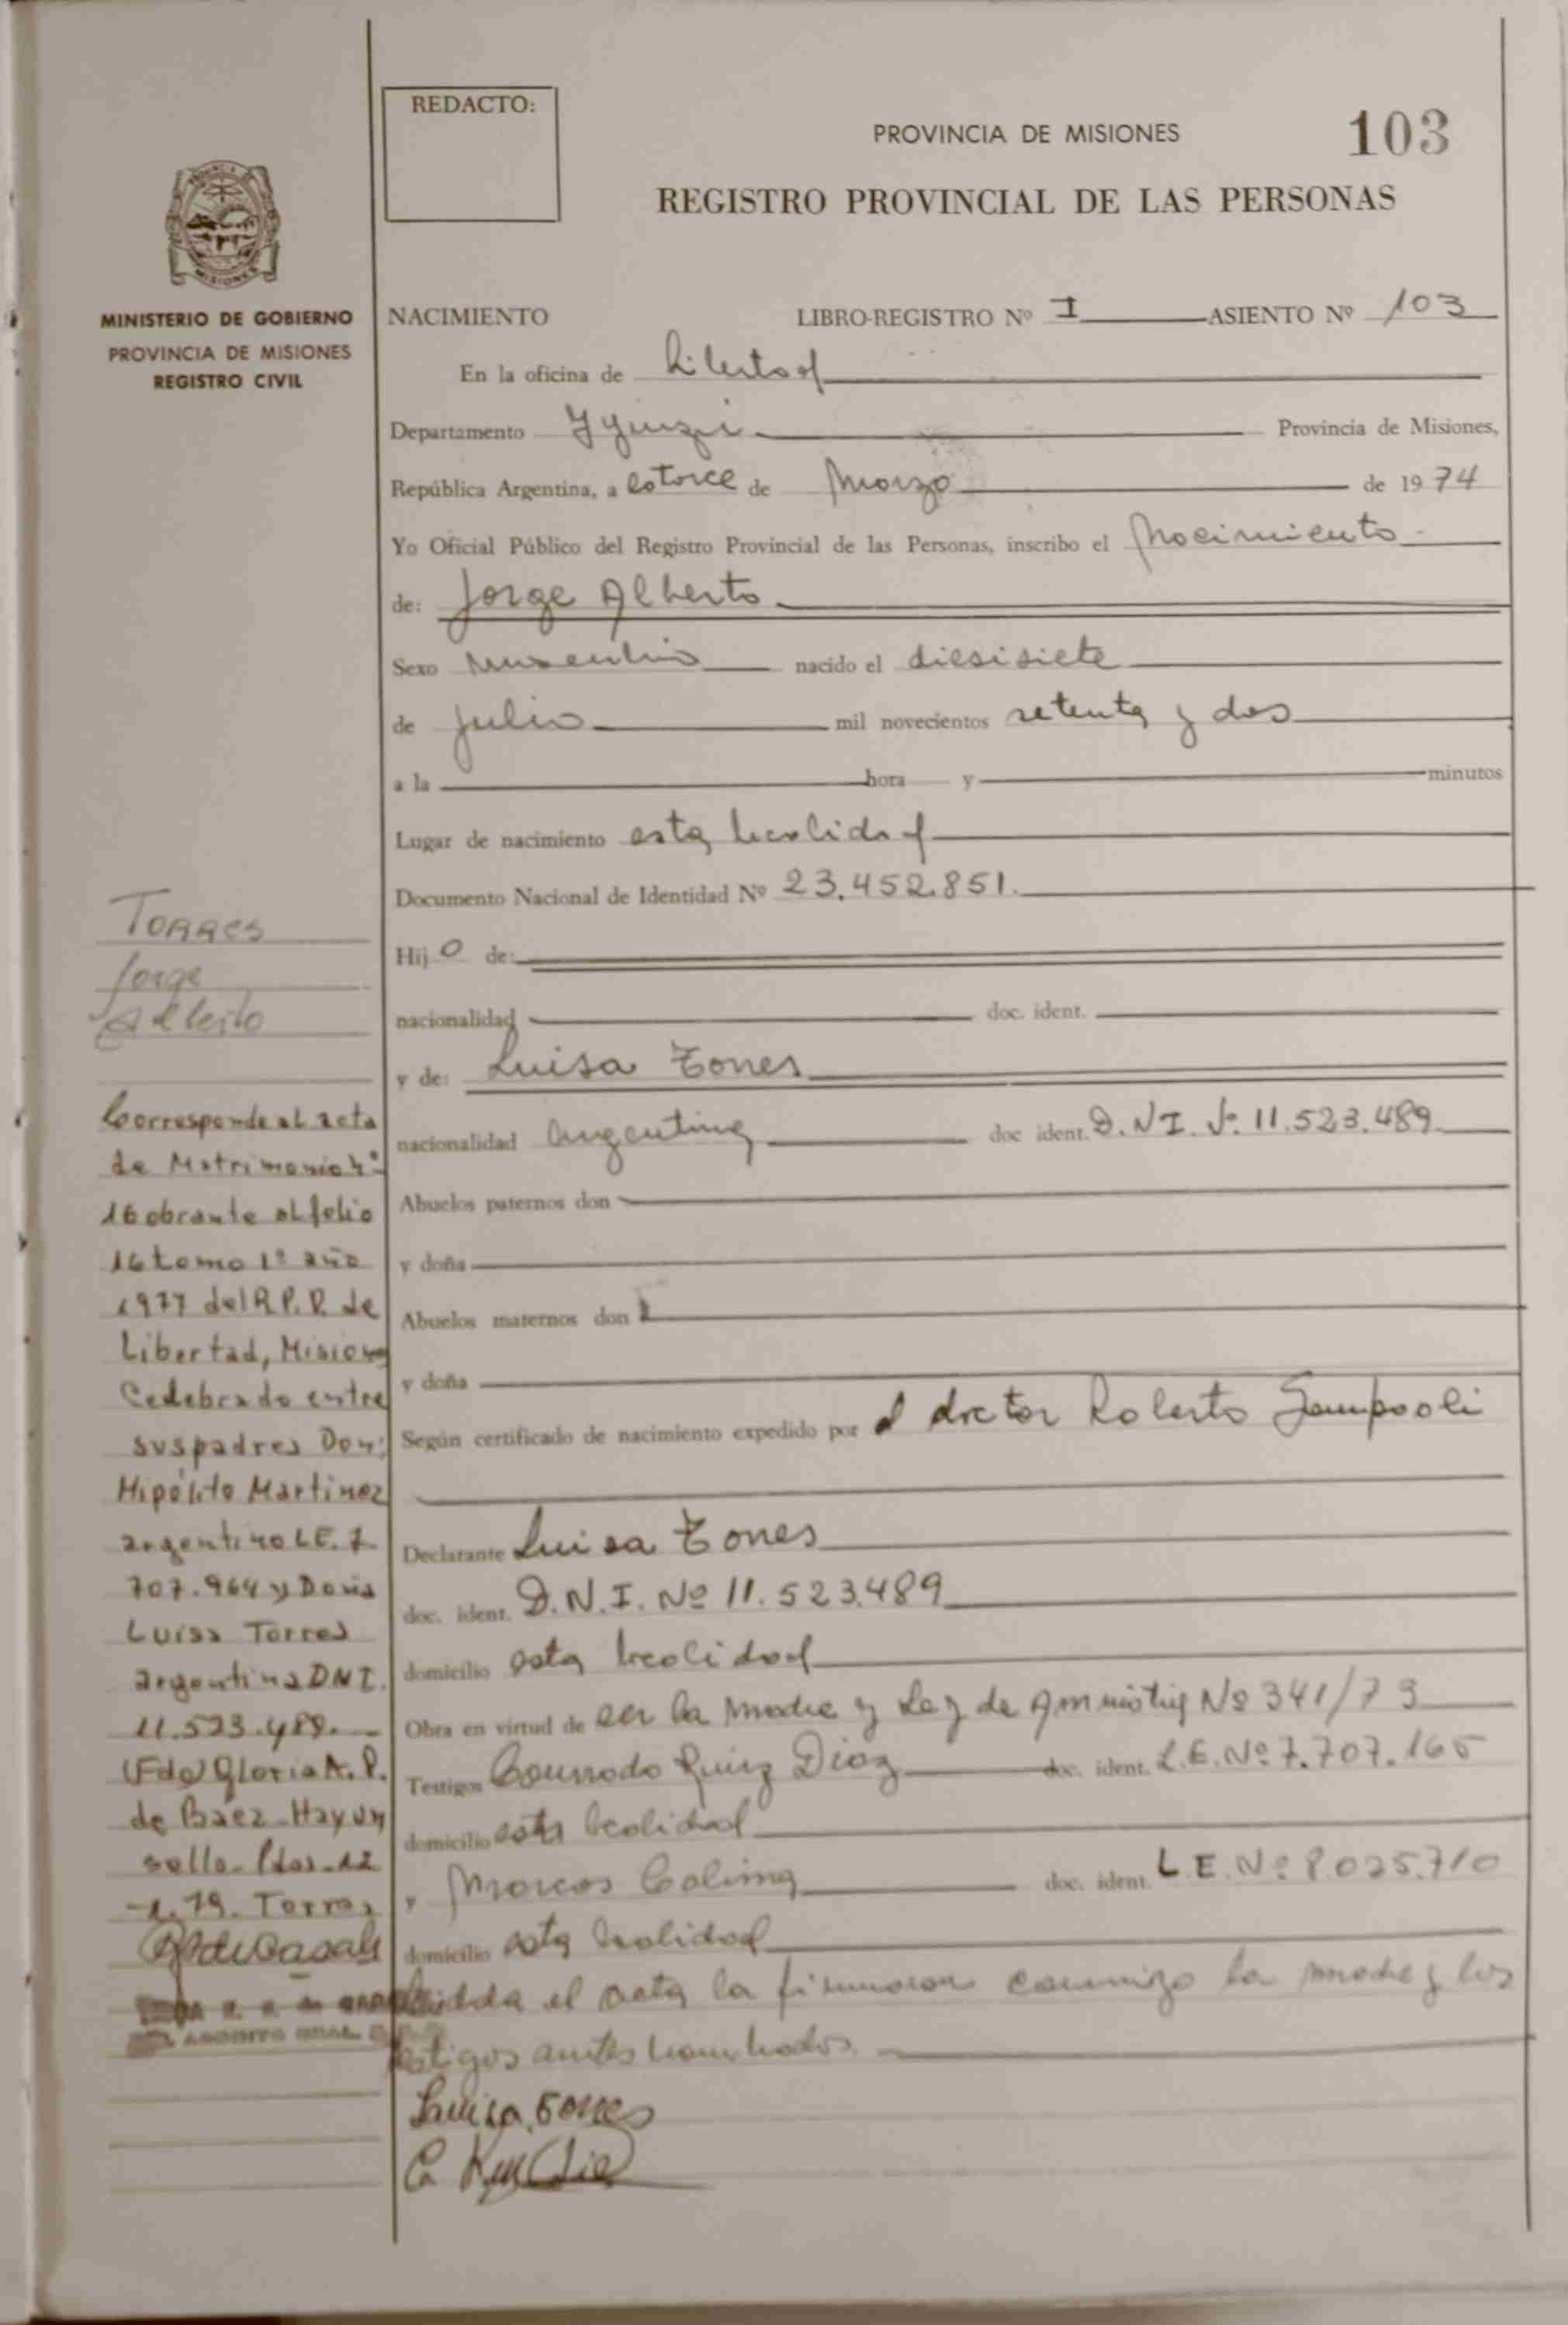 REDACTO:
PROVINCIA DE MISIONES
103
REGISTRO PROVINCIAL DE LAS PERSONAS
MISIONES
MINISTERIO DE GOBIERNO
PROVINCIA DE MISIONES
REGISTRO CIVIL
NACIMIENTO LIBRO-REGISTRO Nº I ASIENTO Nº 103
En la oficina de Libertad
Departamento Iguazú Provincia de Misiones,
República Argentina, a catorce de Marzo de 1974
Yo Oficial Público del Registro Provincial de las Personas, inscribo el Nacimiento
de: Jorge Alberto
Sexo Masculino nacido el diesisiete
de Julio mil novecientos setenta y dos
a la hora y minutos
Lugar de nacimiento esta localidad
Documento Nacional de Identidad Nº 23.452.851.
Hijo de:
nacionalidad doc. ident.
y de: Luisa Torres
nacionalidad argentina doc ident. D.N.I. Nº 11.523.489
Abuelos paternos don
y doña
Abuelos maternos don
y doña
Según certificado de nacimiento expedido por el doctor Roberto Sampaoli
Declarante Luisa Torres
doc. ident. D.N.I. Nº 11.523.489
domicilio esta localidad
Obra en virtud de ser la madre y Ley de Amnistia Nº 341/73
Testigos Conrrado Ruiz Diaz doc. ident. L.E. Nº 7.707.165
domicilio esta localidad
y Marcos Colima doc. ident. L.E. Nº 8.025.710
domicilio esta localidad
Leida el acta la firmaron conmigo la madre y los
testigos antes nombrados.
Luisa Torres
C. Ruiz Diaz
TORRES
Jorge
Alberto
Corresponde al acta
de Matrimonio Nº
16 obrante al folio
16 tomo 1º año
1977 del R.P.P. de
Libertad, Misiones
Celebrado entre
sus padres Don:
Hipólito Martinez
argentino L.E. 7.
707.964 y Doña
Luisa Torres
argentina DNI.
11.523.489.
(Fdo) Gloria A. P.
de Baez - Hay un
sello - Pdas. 12
-1. 79. Torres